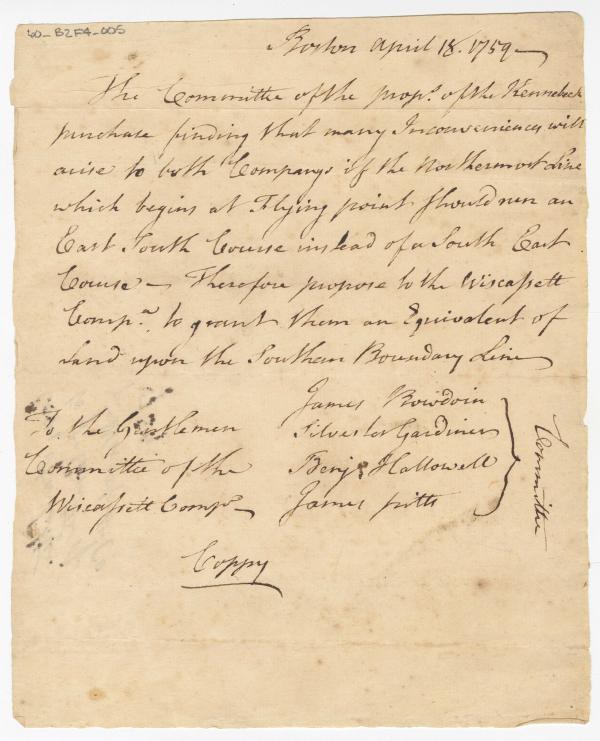 40_B2F4_005
Boston April 18. 1759
The Committe of the prop.s of the Kennebeck
purchase finding that many Inconveniences will
arise to both Companys if the Northermost Line
which begins at Flying point should run an
East South Course instead of a South East
Course — Therefore propose to the Wiscassett
Comp.a to grant them an Equivalent of
Land upon the Southan Boundary Line
James Bowdoin
Silvester Gardiner
Benj.a Hallowell
James pitts
Committe
To the Gentlemen
Committie of the
Wiscassett Comp.a
Coppy